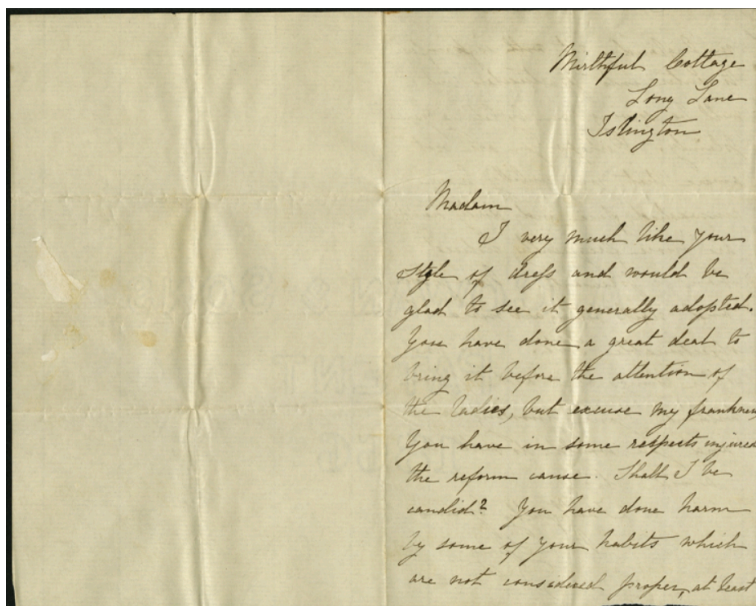 Mirthful Cottage
Long Lane
Islington
Madam
I very much like your
style of dress and would be
glad to see it generally adopted.
You have done a great deal to
bring it before the attention of
the ladies, but excuse my frankness
You have in some respects injured
the reform cause. Shall I be
candid? You have done harm
by some of your habits which
are not considered proper, at least